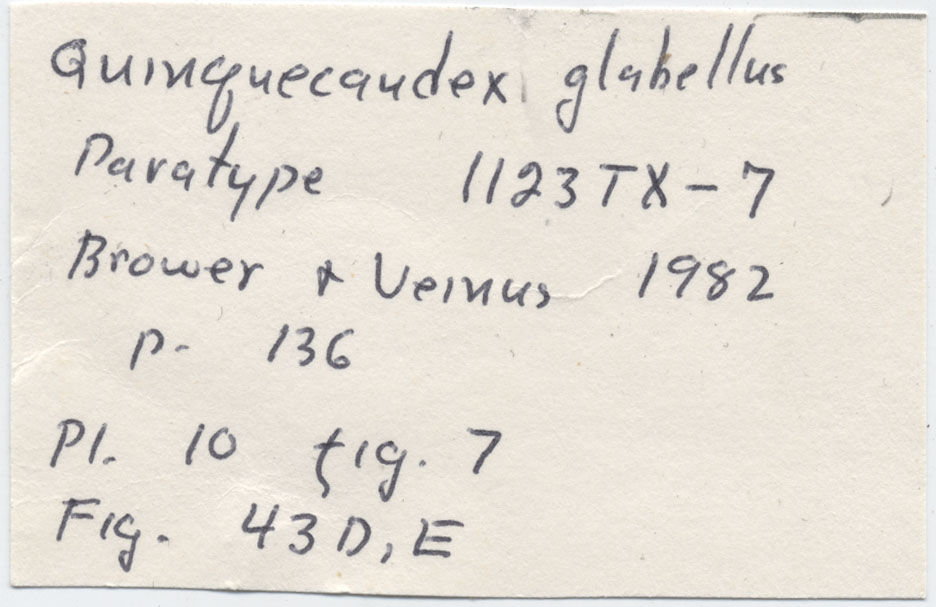 Quinquecaudex glabellus
Paratype 1123TX-7
Brower & Veinus 1982
p. 136
Pl. 10 fig. 7
Fig. 43D,E